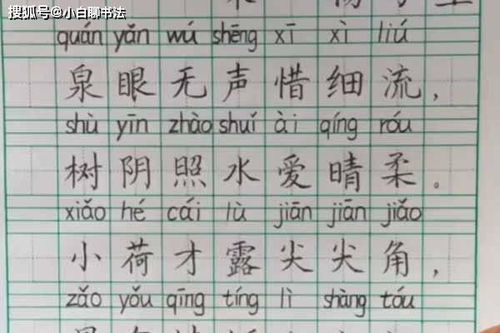 搜狐号@小白聊书法
quán yǎn wú shēng xī xì liú
泉眼无声惜细流，
shù yīn zhào shuǐ ài qíng róu
树阴照水爱晴柔。
xiǎo hé cái lù jiān jiān jiǎo
小荷才露尖尖角，
zǎo yǒu qīng tíng lì shàng tóu